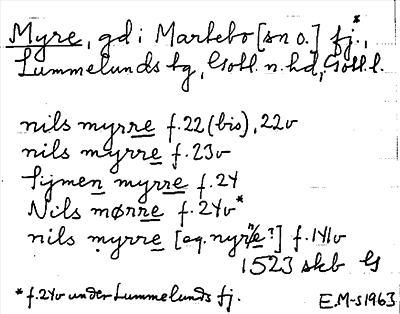 Myre, gd i Martebo [sn o.] fj.*,
Lummelunds tg, Gotl. n. hd, Gotl. l.
nils myrre f. 22 (bis), 22v
nils myrre f. 23v
Sijmen myrre f. 24
Nils mørre f. 24v*
nils myrre [eg. nyrre?] f. 141v
1523 skb Gs
* f. 24v under Lummelunds fj.
E.M-s 1963